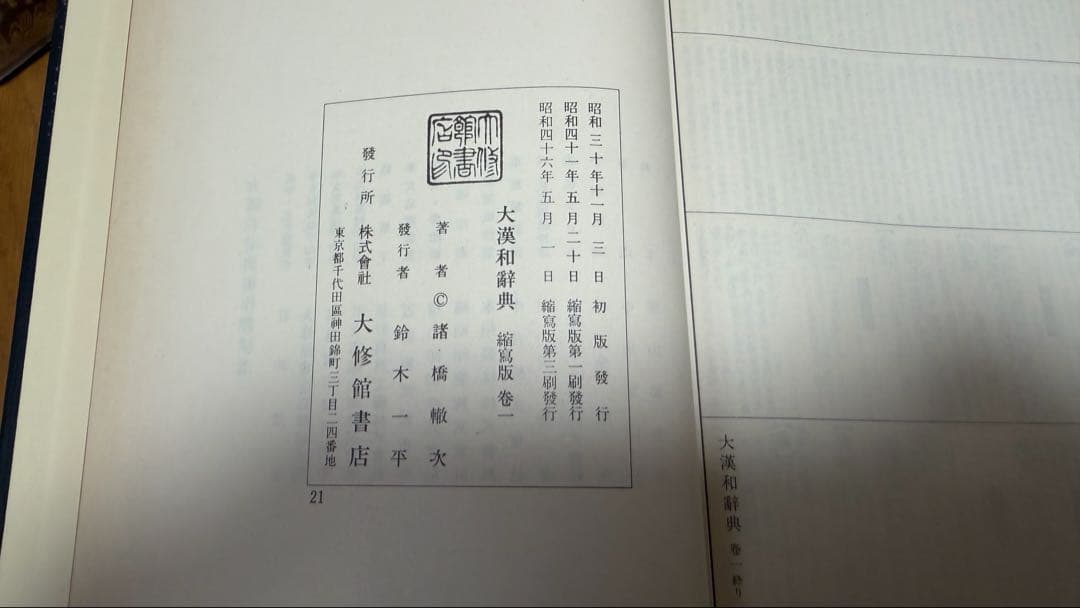 昭和三十年十一月三日初版發行
昭和四十一年五月二十日縮寫版第一刷發行
昭和四十六年五月一日縮寫版第三刷發行
大漢和辭典 縮寫版 卷一
著者©諸橋轍次
發行者 鈴木一平
大修館書店印
發行所 株式會社 大修館書店
東京都千代田區神田錦町三丁目二四番地
21
大漢和辭典 卷一終り